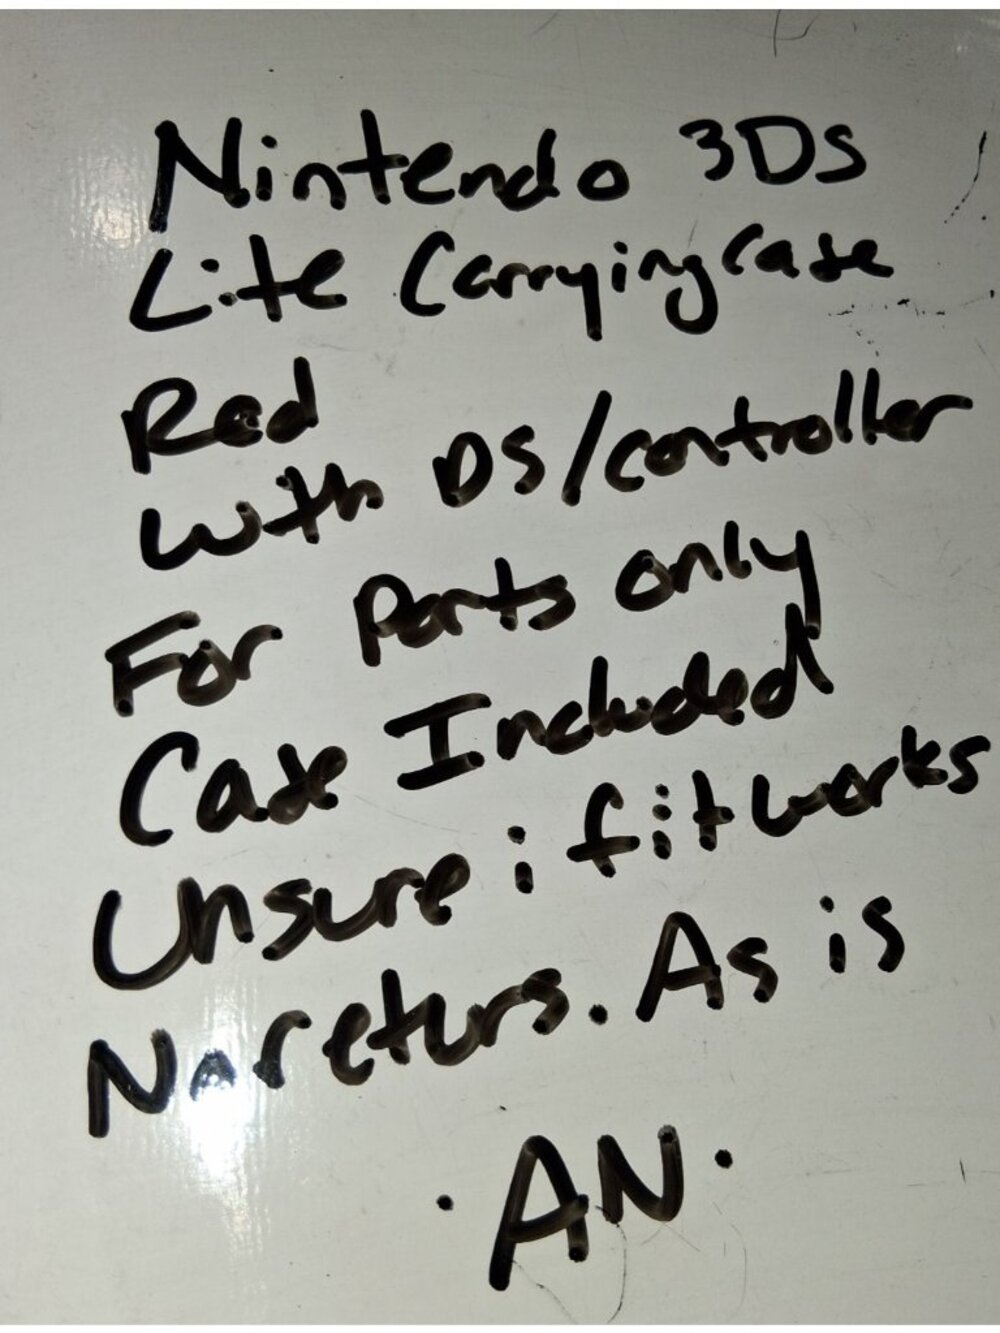 Nintendo 3DS
Lite Carrying Case
Red
with DS/controller
For Parts only
Case Included
Unsure if it works
No returs. As is
·AN·